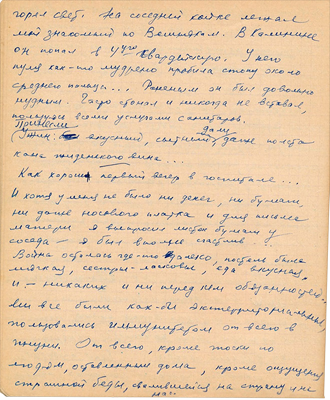 горел свет. На соседней койке лежал
мой знакомый по Вешнякам. В Калинине
он попал в Гвардейскую. У него
пуля как-то мудрено пробила стопу около
среднего пальца... Раненым он был довольно
нудным. Часто стонал и никогда не вставал,
пользуясь всеми услугами санитаров.
Принесли
Ужин: вкусный, сытный, даже по пол
дали
кана жиденького вина...
Как хорош первый вечер в госпитале...
И хотя у меня не было ни денег, ни бумаги,
ни даже носового платка и для письма
матери я выпросил листок бумаги у
соседа — я был вполне счастлив.
Война осталась где-то далеко, постель была
мягкая, сестры - ласковы, еда вкусная,
и — никаких и ни перед кем обязанностей.
мы все были как-бы экстерриториальны,
пользовались иммунитетом от всего в
жизни. От всего, кроме тоски по
людям, оставленным дома, кроме ощущения
страшной беды, свалившейся на страну и не
на